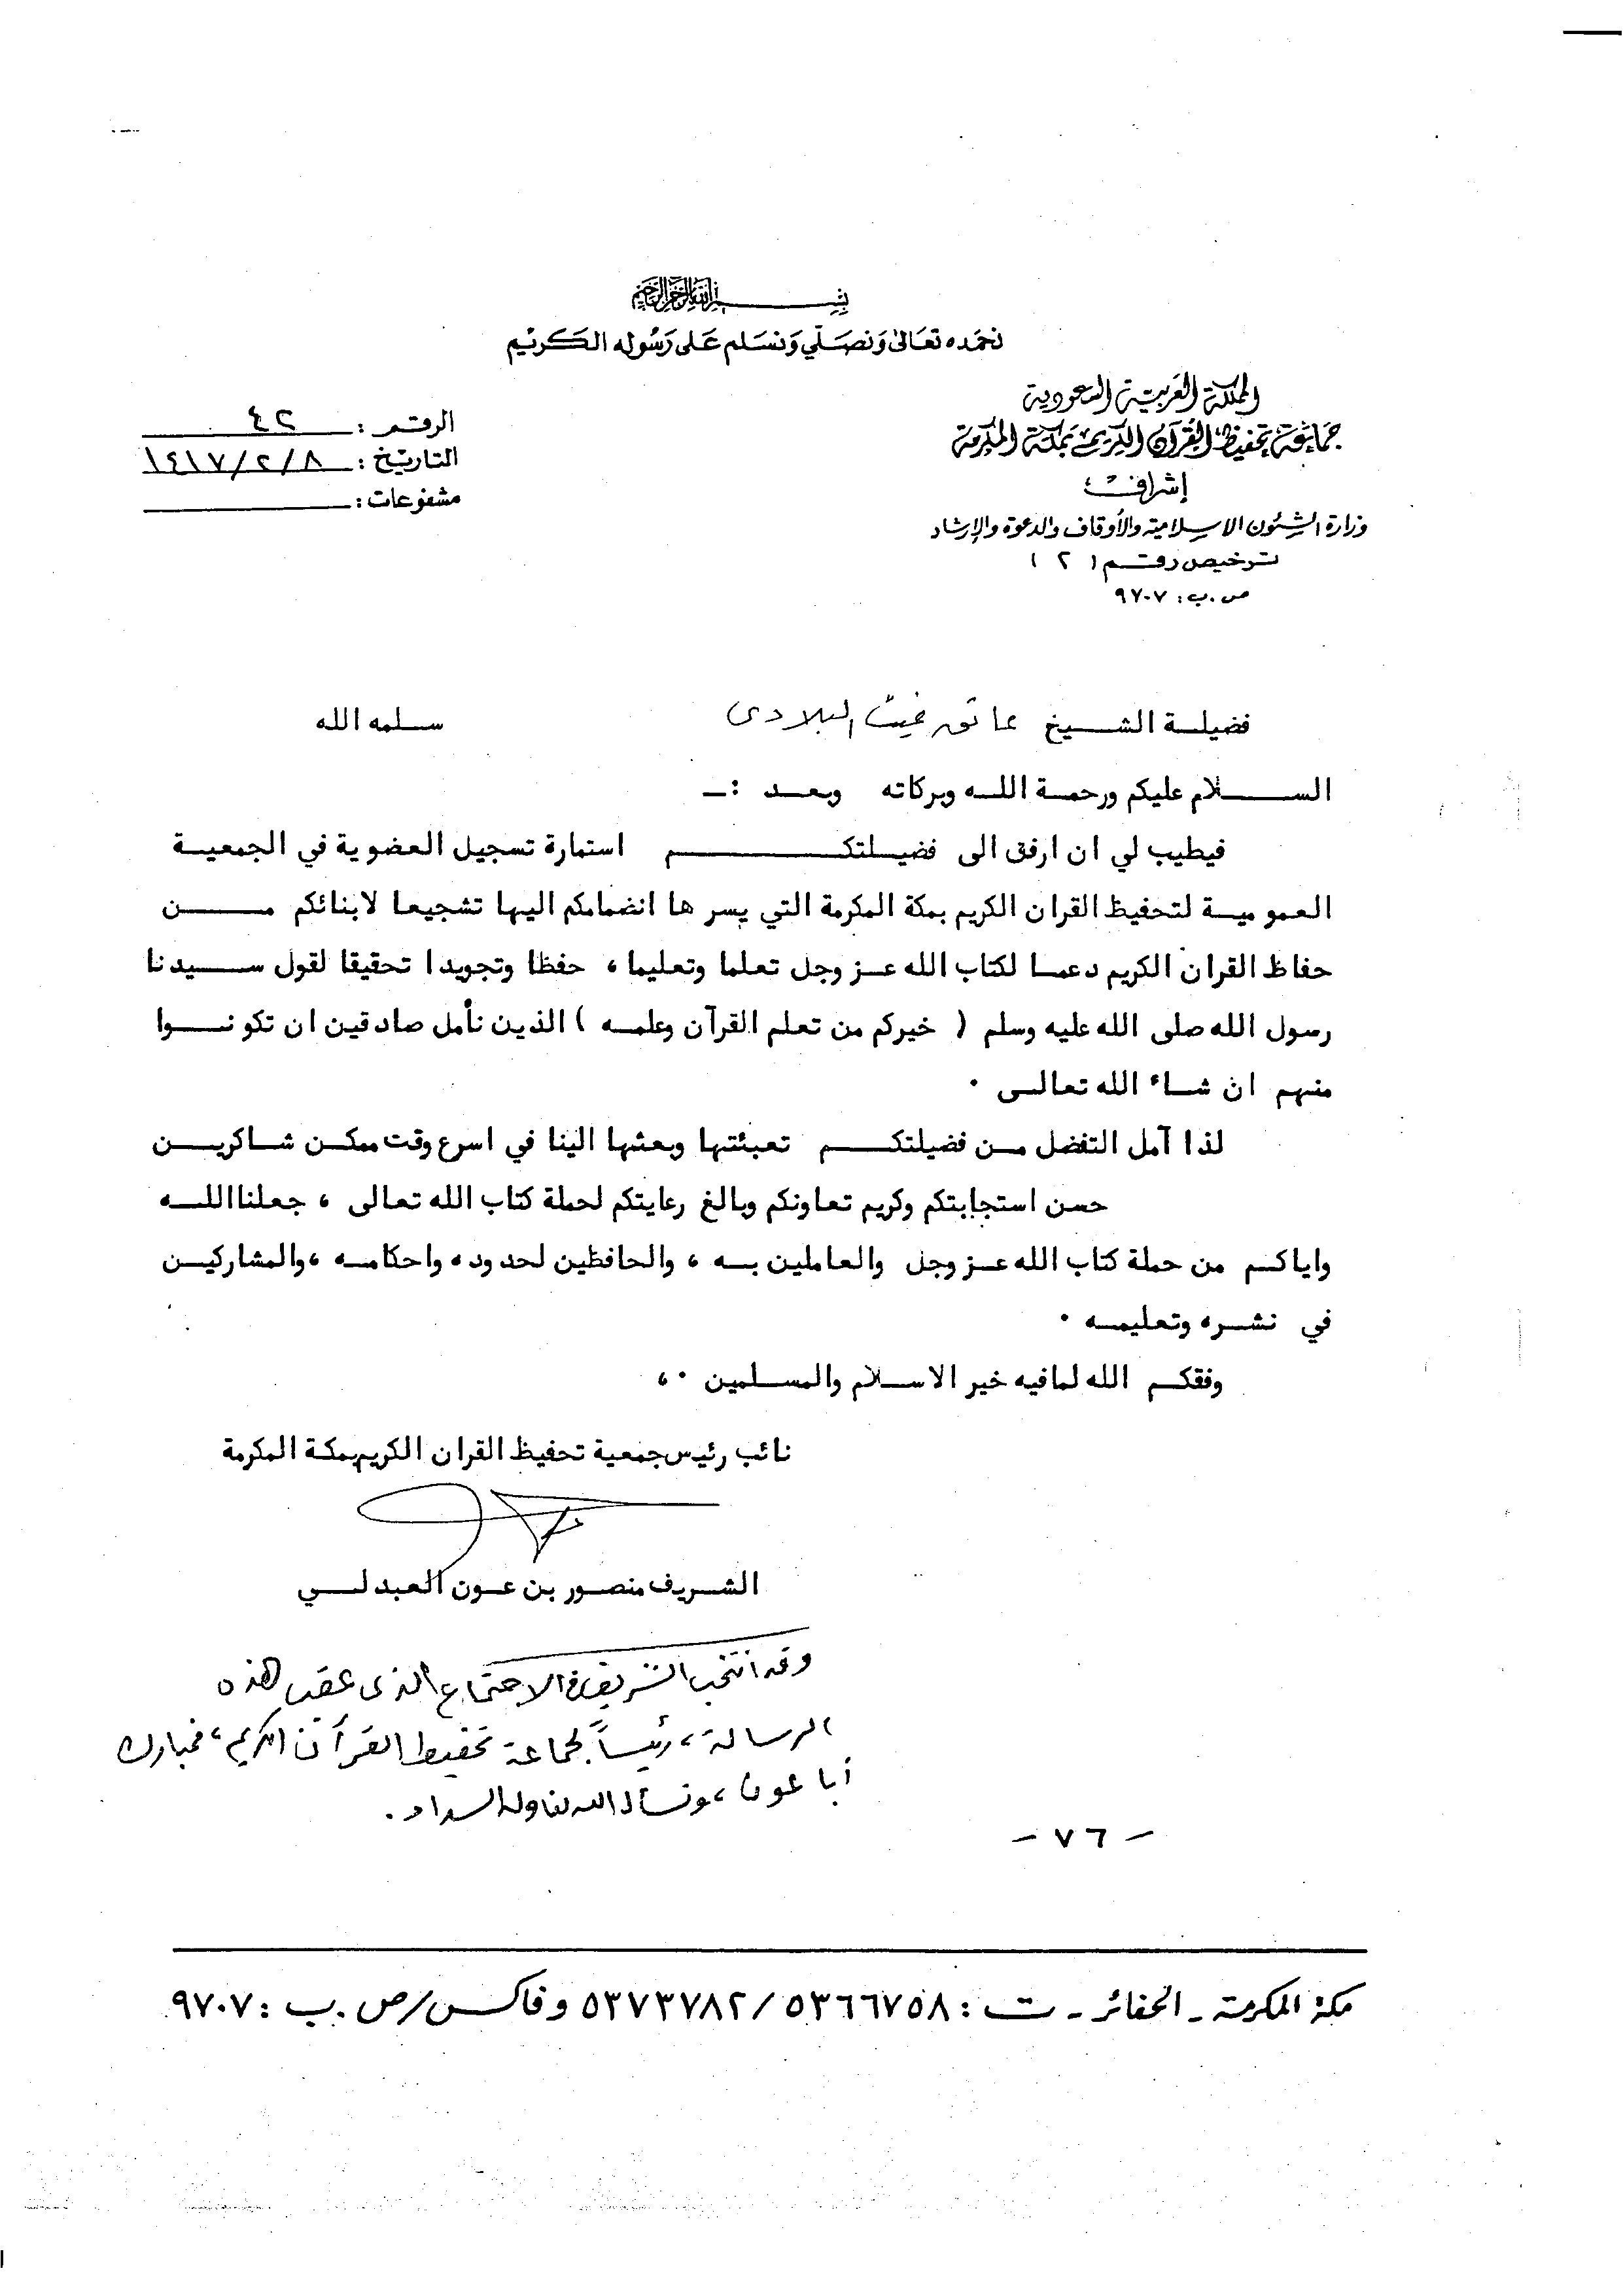 بسم الله الرحمن الرحيم
نحمده تعالى ونصلي ونسلم على رسوله الكريم
المملكة العربية السعودية
جماعة تحفيظ القرآن الكريم بمكة المكرمة
إشراف
وزارة الشئون الاسلامية والأوقاف والدعوة والإرشاد
ترخيص رقم ( ٢ )
ص.ب: ٩٧٠٧
الرقم : ٤٢
التاريخ : ١٤١٧/٢/٨
مشفوعات :
فضيلة الشيخ عاتق غيث البلادى سلمه الله
السلام عليكم ورحمة الله وبركاته وبعد :ـ
فيطيب لي ان ارفق الى فضيلتكم استمارة تسجيل العضوية في الجمعية
العمومية لتحفيظ القران الكريم بمكة المكرمة التي يسرها انضمامكم اليها تشجيعا لابنائكم من
حفاظ القران الكريم دعما لكتاب الله عز وجل تعلما وتعليما ، حفظا وتجويدا تحقيقا لقول سيدنا
رسول الله صلى الله عليه وسلم ( خيركم من تعلم القرآن وعلمه ) الذين نأمل صادقين ان تكونوا
منهم ان شاء الله تعالى .
لذا آمل التفضل من فضيلتكم تعبئتها وبعثها الينا في اسرع وقت ممكن شاكرين
حسن استجابتكم وكريم تعاونكم وبالغ رعايتكم لحملة كتاب الله تعالى ، جعلنا الله
واياكم من حملة كتاب الله عز وجل والعاملين به ، والحافظين لحدوده واحكامه ،والمشاركين
في نشره وتعليمه .
وفقكم الله لمافيه خير الاسلام والمسلمين .،
نائب رئيس جمعية تحفيظ القران الكريم بمكة المكرمة
الشريف منصور بن عون العبدلي
وقد انتخب الشريف في الاجتماع الذى عقب هذه
الرسالة ، رئيساً لجماعة تحفيظ القرآن الكريم ، فمبارك
أبا عون ، ونسأل الله لنا وله السداد .
- ٧٦ -
مكة المكرمة - الحفائر - ت : ٥٣٦٦٧٥٨ / ٥٣٧٣٧٨٢ وفاكس/ص.ب : ٩٧٠٧